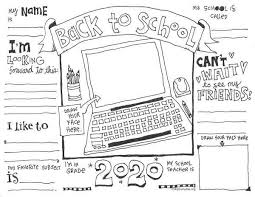 MY NAME
IS
BACK to SCHOOL
MY SCHOOL IS
CALLED
I'm
LOOKING
forward to this:
CAN'T
WAIT
to see my
FRIENDS!
DRAW
YOUR
FACE
HERE.
I like to
DRAW YOUR PALS HERE
MY FAVORITE SUBJECT
IS
I'm in
GRADE
2020
MY SCHOOL
TEACHER IS